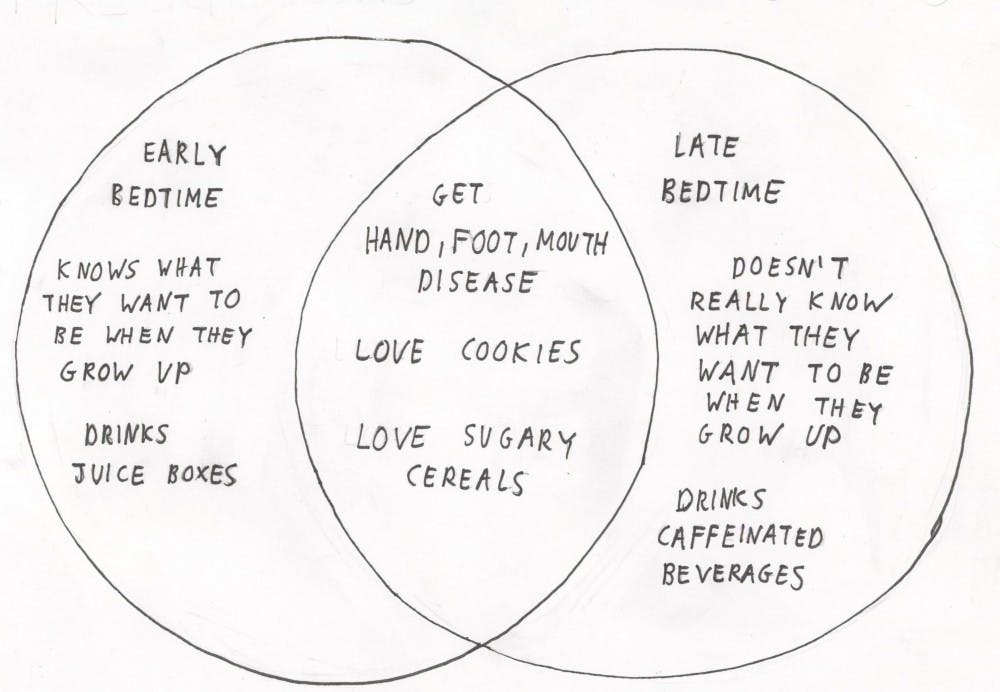 EARLY
BEDTIME
KNOWS WHAT
THEY WANT TO
BE WHEN THEY
GROW UP
DRINKS
JUICE BOXES
GET
HAND, FOOT, MOUTH
DISEASE
LOVE COOKIES
LOVE SUGARY
CEREALS
LATE
BEDTIME
DOESN'T
REALLY KNOW
WHAT THEY
WANT TO BE
WHEN THEY
GROW UP
DRINKS
CAFFEINATED
BEVERAGES